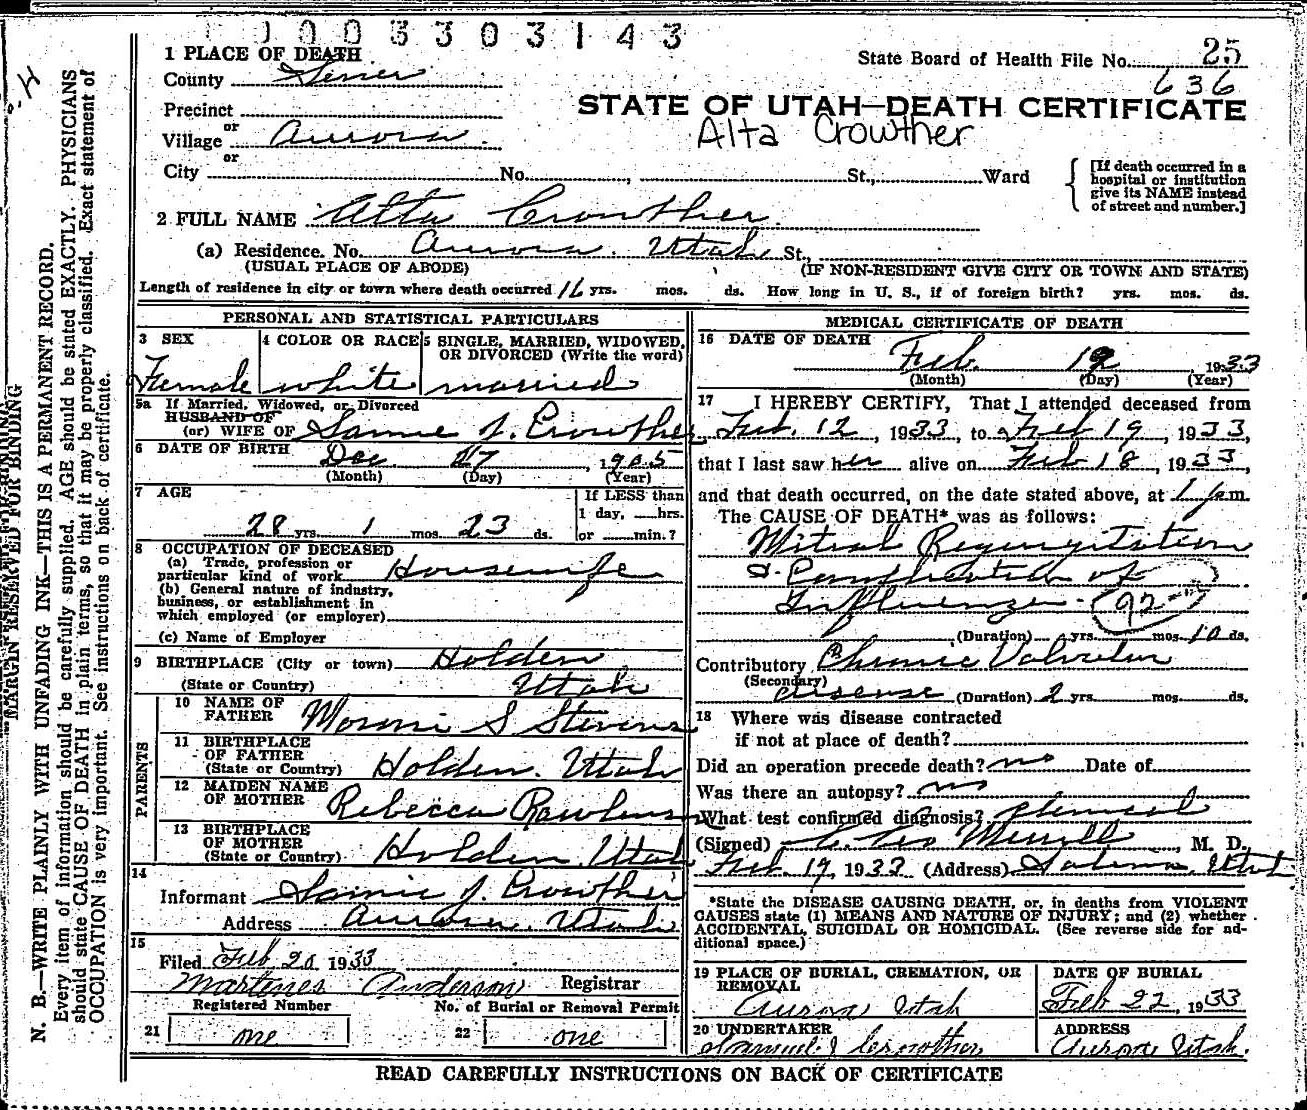 0 0 0 5 3 0 3 1 4 3
1 PLACE OF DEATH
State Board of Health File No. 25
County Sevier
636
Precinct
STATE OF UTAH—DEATH CERTIFICATE
or
Village Aurora
Alta Crowther
or
City No. , St., Ward
[If death occurred in a hospital or institution give its NAME instead of street and number.]
2 FULL NAME Alta Crowther
(a) Residence. No. Aurora. Utah St.,
(USUAL PLACE OF ABODE) (IF NON-RESIDENT GIVE CITY OR TOWN AND STATE)
Length of residence in city or town where death occurred 16 yrs. mos. ds. How long in U. S., if of foreign birth? yrs. mos. ds.
PERSONAL AND STATISTICAL PARTICULARS
3 SEX 4 COLOR OR RACE 5 SINGLE, MARRIED, WIDOWED, OR DIVORCED (Write the word)
Female white married
5a If Married, Widowed, or Divorced
HUSBAND OF
(or) WIFE OF Samie J. Crowther
6 DATE OF BIRTH Dec 27, 1905
(Month) (Day) (Year)
7 AGE If LESS than
1 day, hrs.
28 yrs. 1 mos. 23 ds. or min.?
8 OCCUPATION OF DECEASED
(a) Trade, profession or
particular kind of work Housewife
(b) General nature of industry,
business, or establishment in
which employed (or employer)
(c) Name of Employer
9 BIRTHPLACE (City or town) Holden
(State or Country) Utah
PARENTS
10 NAME OF FATHER Moroni S Stevens
11 BIRTHPLACE OF FATHER
(State or Country) Holden. Utah
12 MAIDEN NAME OF MOTHER Rebecca Rawlins
13 BIRTHPLACE OF MOTHER
(State or Country) Holden, Utah
14
Informant Samie J. Crowther
Address Aurora, Utah
15
Filed Feb 20 1933
Martines Anderson Registrar
Registered Number No. of Burial or Removal Permit
21 one 22 one
MEDICAL CERTIFICATE OF DEATH
16 DATE OF DEATH
Feb. 19, 1933
(Month) (Day) (Year)
17 I HEREBY CERTIFY, That I attended deceased from
Feb. 12, 1933, to Feb 19, 1933,
that I last saw her alive on Feb 18, 1933,
and that death occurred, on the date stated above, at 1 p.m.
The CAUSE OF DEATH* was as follows:
Mitral Regurgitation
of
Influenza. 92
(Duration) yrs. mos. 10 ds.
Contributory Chronic Valvular
(Secondary)
disease (Duration) 2 yrs. mos. ds.
18 Where was disease contracted
if not at place of death?
Did an operation precede death? no Date of
Was there an autopsy? no
What test confirmed diagnosis?
(Signed) Merrill, M. D.
Feb. 19, 1933 (Address) Salina, Utah
*State the DISEASE CAUSING DEATH, or, in deaths from VIOLENT
CAUSES state (1) MEANS AND NATURE OF INJURY; and (2) whether
ACCIDENTAL, SUICIDAL OR HOMICIDAL. (See reverse side for ad-
ditional space.)
19 PLACE OF BURIAL, CREMATION, OR REMOVAL DATE OF BURIAL
Aurora Utah Feb 22, 1933
20 UNDERTAKER ADDRESS
Samuel J Crowther Aurora Utah.
READ CAREFULLY INSTRUCTIONS ON BACK OF CERTIFICATE
MARGIN RESERVED FOR BINDING
N. B.—WRITE PLAINLY WITH UNFADING INK—THIS IS A PERMANENT RECORD.
Every item of information should be carefully supplied. AGE should be stated EXACTLY. PHYSICIANS
should state CAUSE OF DEATH in plain terms, so that it may be properly classified. Exact statement of
OCCUPATION is very important. See instructions on back of certificate.